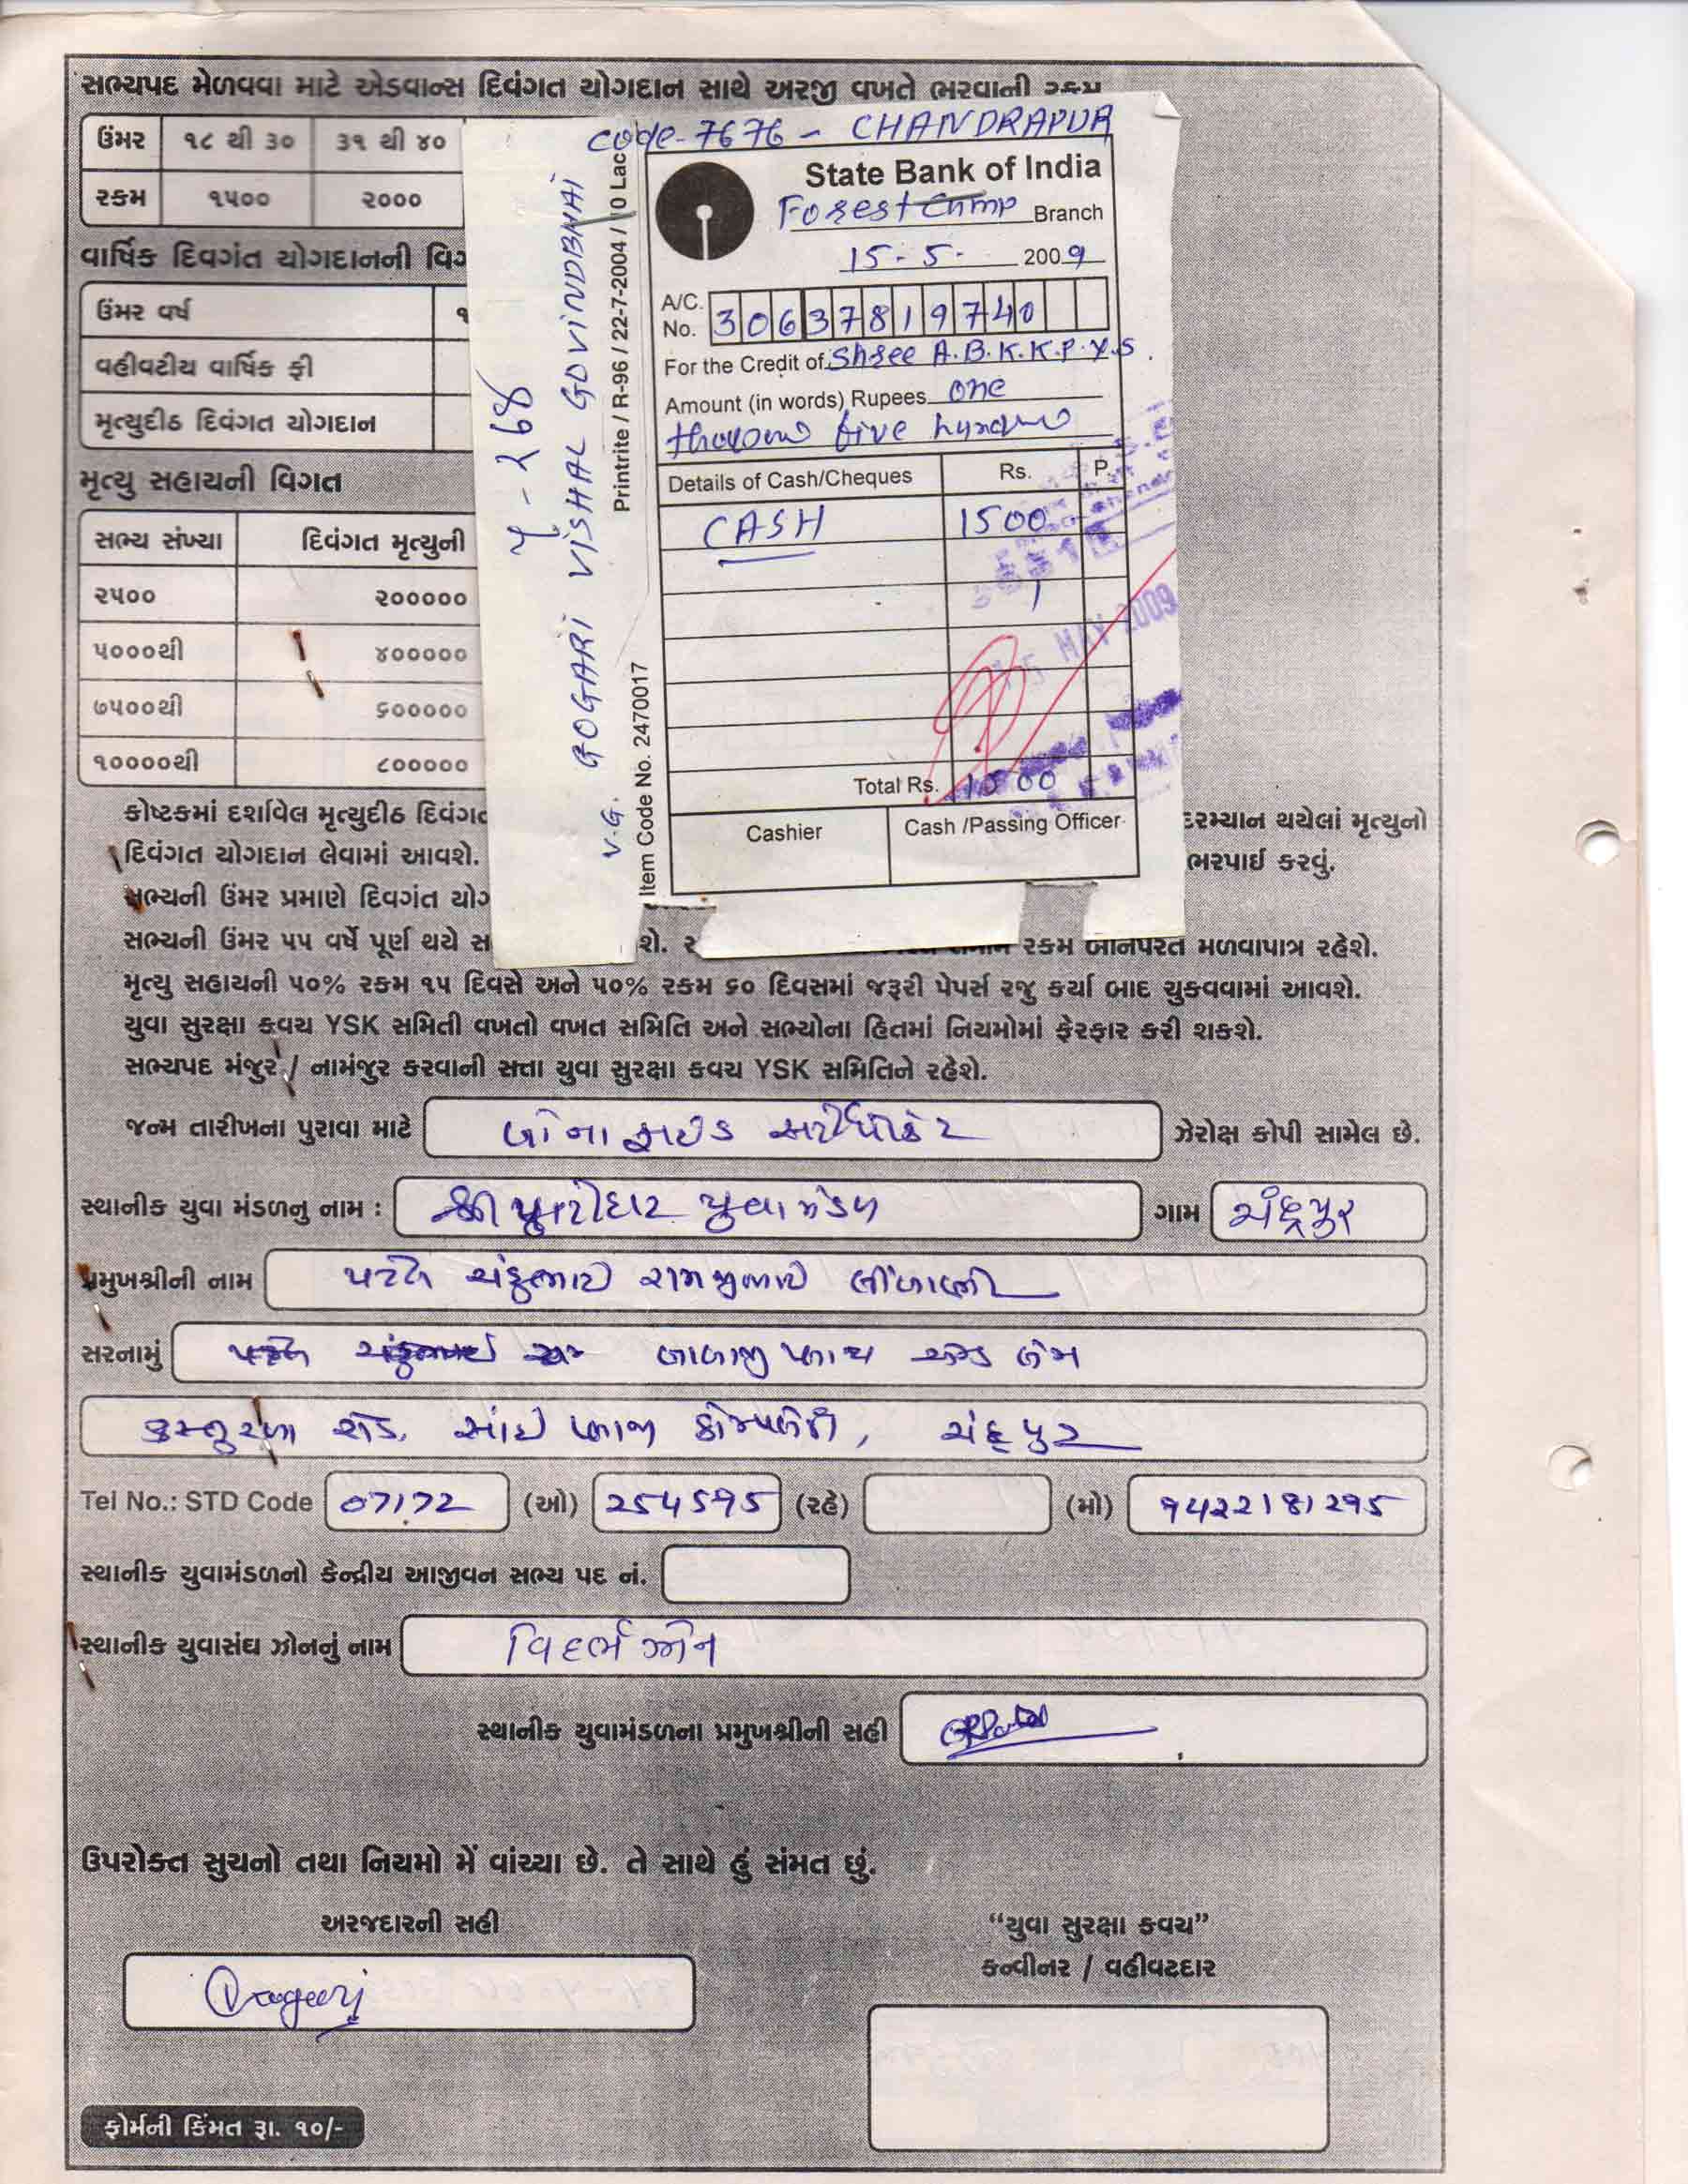 સભ્યપદ મેળવવા માટે એડવાન્સ દિવંગત યોગદાન સાથે અરજી વખતે ભરવાની રકમ
ઉંમર ૧૮ થી ૩૦ ૩૧ થી ૪૦
રકમ ૧૫૦૦ ૨૦૦૦
વાર્ષિક દિવગંત યોગદાનની
ઉંમર વર્ષ
વહીવટીય વાર્ષિક ફી
મૃત્યુદીઠ દિવંગત યોગદાન
મૃત્યુ સહાયની વિગત
સભ્ય સંખ્યા દિવંગત મૃત્યુની
૨૫૦૦ ૨૦૦૦૦૦
૫૦૦૦થી ૪૦૦૦૦૦
૭૫૦૦થી ૬૦૦૦૦૦
૧૦૦૦૦થી ૮૦૦૦૦૦
Code-7676 - CHANDRAPUR
State Bank of India
Forest Camp Branch
15-5- 2009
A/C. No. 30637819740
For the Credit of Shree A.B.K.K.P.Y.S.
Amount (in words) Rupees one
thousand five hundred
Details of Cash/Cheques Rs. P.
CASH 1500
15 MAY 2009
Total Rs. 1500
Cashier Cash /Passing Officer
Printrite / R-96 / 22-7-2004 / 10 Lac
Item Code No. 2470017
V.G. GOGARI VISHAL GOVINDBHAI
કોષ્ટકમાં દર્શાવેલ મૃત્યુદીઠ દરમ્યાન થયેલાં મૃત્યુનો
દિવંગત યોગદાન લેવામાં આવશે. ભરપાઈ કરવું.
સભ્યની ઉંમર પ્રમાણે દિવગંત
સભ્યની ઉંમર ૫૫ વર્ષે પૂર્ણ થયે રકમ બીનપરત મળવાપાત્ર રહેશે.
મૃત્યુ સહાયની ૫૦% રકમ ૧૫ દિવસે અને ૫૦% રકમ ૬૦ દિવસમાં જરૂરી પેપર્સ રજુ કર્યા બાદ ચુકવવામાં આવશે.
યુવા સુરક્ષા કવચ YSK સમિતી વખતો વખત સમિતિ અને સભ્યોના હિતમાં નિયમોમાં ફેરફાર કરી શકશે.
સભ્યપદ મંજુર / નામંજુર કરવાની સત્તા યુવા સુરક્ષા કવચ YSK સમિતિને રહેશે.
જન્મ તારીખના પુરાવા માટે બોનાફાઈડ સર્ટીફીકેટ ઝેરોક્ષ કોપી સામેલ છે.
સ્થાનીક યુવા મંડળનુ નામ : શ્રી પાટીદાર યુવા મંડળ ગામ ચંદ્રપુર
પ્રમુખશ્રીની નામ પટેલ ચંદુભાઈ રામજીભાઈ લીંબાણી
સરનામું બાલાજી પ્લાય એન્ડ
કસ્તુરબા રોડ, સાંઈ કોમ્પલેક્ષ, ચંદ્રપુર
Tel No.: STD Code 07172 (ઓ) 254595 (રહે) (મો) 9422181295
સ્થાનીક યુવામંડળનો કેન્દ્રીય આજીવન સભ્ય પદ નં.
સ્થાનીક યુવાસંઘ ઝોનનું નામ વિદર્ભ ઝોન
સ્થાનીક યુવામંડળના પ્રમુખશ્રીની સહી
ઉપરોક્ત સુચનો તથા નિયમો મેં વાંચ્યા છે. તે સાથે હું સંમત છું.
અરજદારની સહી
“યુવા સુરક્ષા કવચ”
કન્વીનર / વહીવટદાર
ફોર્મની કિંમત રૂા. ૧૦/-